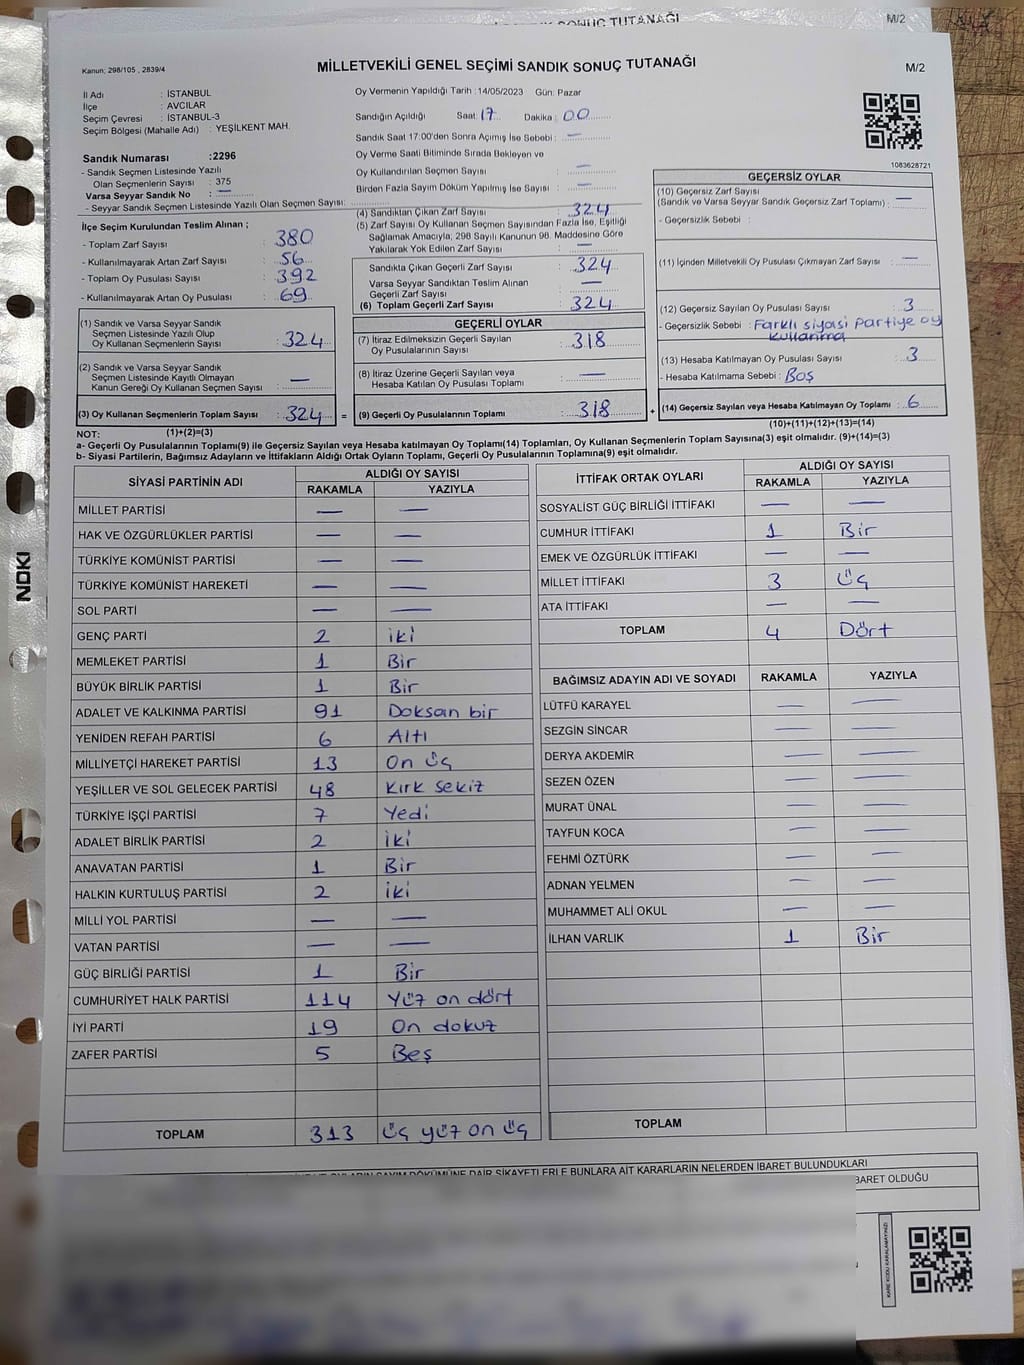 SONUÇ TUTANAĞI
M/2
Kanun: 298/105 , 2839/4
MİLLETVEKİLİ GENEL SEÇİMİ SANDIK SONUÇ TUTANAĞI
M/2
İl Adı : İSTANBUL
İlçe : AVCILAR
Seçim Çevresi : İSTANBUL-3
Seçim Bölgesi (Mahalle Adı) : YEŞİLKENT MAH.
Sandık Numarası :2296
- Sandık Seçmen Listesinde Yazılı
Olan Seçmenlerin Sayısı : 375
Varsa Seyyar Sandık No : —
- Seyyar Sandık Seçmen Listesinde Yazılı Olan Seçmen Sayısı:
Oy Vermenin Yapıldığı Tarih :14/05/2023 Gün: Pazar
Sandığın Açıldığı Saat: 17 Dakika : 00
Sandık Saat 17:00'den Sonra Açımış İse Sebebi : —
Oy Verme Saati Bitiminde Sırada Bekleyen ve
Oy Kullandırılan Seçmen Sayısı : —
Birden Fazla Sayım Döküm Yapılmış İse Sayısı : —
1083628721
İlçe Seçim Kurulundan Teslim Alınan ;
- Toplam Zarf Sayısı : 380
- Kullanılmayarak Artan Zarf Sayısı : 56
- Toplam Oy Pusulası Sayısı : 392
- Kullanılmayarak Artan Oy Pusulası : 69
(1) Sandık ve Varsa Seyyar Sandık
Seçmen Listesinde Yazılı Olup
Oy Kullanan Seçmenlerin Sayısı : 324
(2) Sandık ve Varsa Seyyar Sandık
Seçmen Listesinde Kayıtlı Olmayan
Kanun Gereği Oy Kullanan Seçmen Sayısı : —
(3) Oy Kullanan Seçmenlerin Toplam Sayısı : 324 =
(1)+(2)=(3)
(4) Sandıktan Çıkan Zarf Sayısı : 324
(5) Zarf Sayısı Oy Kullanan Seçmen Sayısından Fazla İse, Eşitliği
Sağlamak Amacıyla; 298 Sayılı Kanunun 98. Maddesine Göre
Yakılarak Yok Edilen Zarf Sayısı : —
Sandıkta Çıkan Geçerli Zarf Sayısı : 324
Varsa Seyyar Sandıktan Teslim Alınan
Geçerli Zarf Sayısı : —
(6) Toplam Geçerli Zarf Sayısı : 324
GEÇERLİ OYLAR
(7) İtiraz Edilmeksizin Geçerli Sayılan
Oy Pusulalarının Sayısı : 318
(8) İtiraz Üzerine Geçerli Sayılan veya
Hesaba Katılan Oy Pusulası Toplamı : —
(9) Geçerli Oy Pusulalarının Toplamı : 318 +
GEÇERSİZ OYLAR
(10) Geçersiz Zarf Sayısı
(Sandık ve Varsa Seyyar Sandık Geçersiz Zarf Toplamı) : —
- Geçersizlik Sebebi :
(11) İçinden Milletvekili Oy Pusulası Çıkmayan Zarf Sayısı : —
(12) Geçersiz Sayılan Oy Pusulası Sayısı : 3
- Geçersizlik Sebebi : Farklı siyasi Partiye oy
kullanma
(13) Hesaba Katılmayan Oy Pusulası Sayısı : 3
- Hesaba Katılmama Sebebi : Boş
(14) Geçersiz Sayılan veya Hesaba Katılmayan Oy Toplamı : 6
(10)+(11)+(12)+(13)=(14)
NOT:
a- Geçerli Oy Pusulalarının Toplamı(9) ile Geçersiz Sayılan veya Hesaba katılmayan Oy Toplamı(14) Toplamları, Oy Kullanan Seçmenlerin Toplam Sayısına(3) eşit olmalıdır. (9)+(14)=(3)
b- Siyasi Partilerin, Bağımsız Adayların ve İttifakların Aldığı Ortak Oyların Toplamı, Geçerli Oy Pusulalarının Toplamına(9) eşit olmalıdır.
SİYASİ PARTİNİN ADI ALDIĞI OY SAYISI
RAKAMLA YAZIYLA
MİLLET PARTİSİ — —
HAK VE ÖZGÜRLÜKLER PARTİSİ — —
TÜRKİYE KOMÜNİST PARTİSİ — —
TÜRKİYE KOMÜNİST HAREKETİ — —
SOL PARTİ — —
GENÇ PARTİ 2 iki
MEMLEKET PARTİSİ 1 Bir
BÜYÜK BİRLİK PARTİSİ 1 Bir
ADALET VE KALKINMA PARTİSİ 91 Doksan bir
YENİDEN REFAH PARTİSİ 6 Altı
MİLLİYETÇİ HAREKET PARTİSİ 13 On üç
YEŞİLLER VE SOL GELECEK PARTİSİ 48 Kırk sekiz
TÜRKİYE İŞÇİ PARTİSİ 7 Yedi
ADALET BİRLİK PARTİSİ 2 iki
ANAVATAN PARTİSİ 1 Bir
HALKIN KURTULUŞ PARTİSİ 2 iki
MİLLİ YOL PARTİSİ — —
VATAN PARTİSİ — —
GÜÇ BİRLİĞİ PARTİSİ 1 Bir
CUMHURİYET HALK PARTİSİ 114 Yüz on dört
İYİ PARTİ 19 On dokuz
ZAFER PARTİSİ 5 Beş
TOPLAM 313 üç yüz on üç
İTTİFAK ORTAK OYLARI ALDIĞI OY SAYISI
RAKAMLA YAZIYLA
SOSYALİST GÜÇ BİRLİĞİ İTTİFAKI — —
CUMHUR İTTİFAKI 1 Bir
EMEK VE ÖZGÜRLÜK İTTİFAKI — —
MİLLET İTTİFAKI 3 üç
ATA İTTİFAKI — —
TOPLAM 4 Dört
BAĞIMSIZ ADAYIN ADI VE SOYADI RAKAMLA YAZIYLA
LÜTFÜ KARAYEL — —
SEZGİN SİNCAR — —
DERYA AKDEMİR — —
SEZEN ÖZEN — —
MURAT ÜNAL — —
TAYFUN KOCA — —
FEHMİ ÖZTÜRK — —
ADNAN YELMEN — —
MUHAMMET ALİ OKUL — —
İLHAN VARLIK 1 Bir
TOPLAM
OYLARIN SAYIM DÖKÜMÜNE DAİR ŞİKAYETLERLE BUNLARA AİT KARARLARIN NELERDEN İBARET BULUNDUKLARI
İBARET OLDUĞU
KARE KODU KARALAMAYINIZ!
NOKI